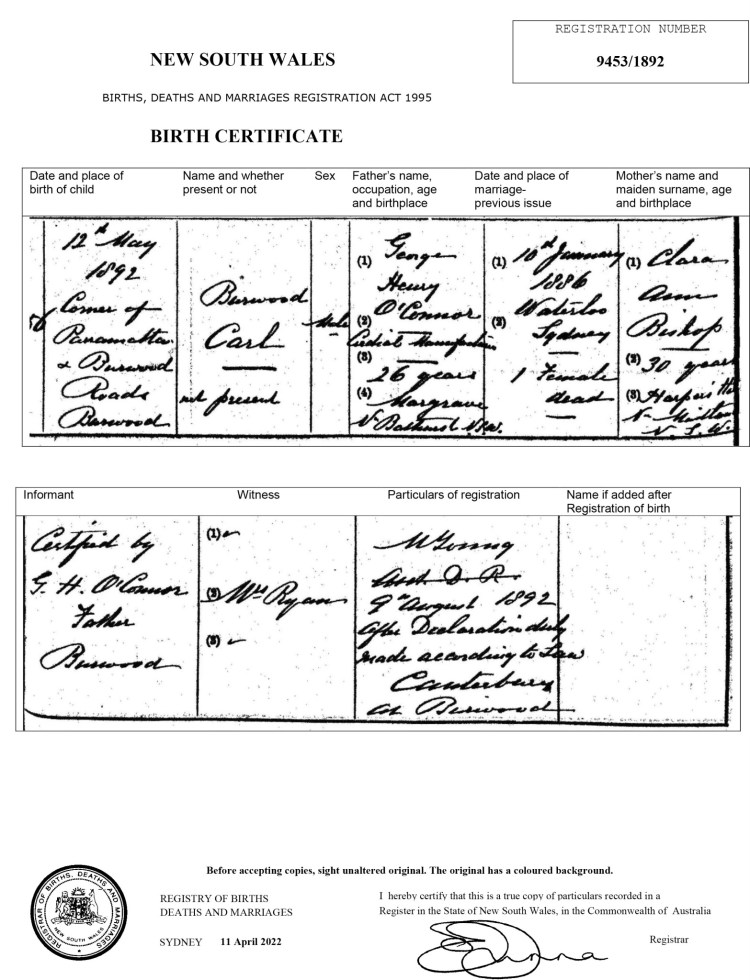 REGISTRATION NUMBER
9453/1892
NEW SOUTH WALES
BIRTHS, DEATHS AND MARRIAGES REGISTRATION ACT 1995
BIRTH CERTIFICATE
Date and place of
birth of child
12th May
1892
Corner of
Parramatta
& Burwood
Roads
Burwood
Name and whether
present or not
Burwood
Carl
not present
Sex
Male
Father's name,
occupation, age
and birthplace
(1) George
Henry
O'Connor
(2)
Cordial Manufacturer
(3)
26 years
(4)
Hargrave
N Bathurst N.S.W.
Date and place of
marriage-
previous issue
(1) 10th January
1886
Waterloo
(2) Sydney
1 Female
dead
Mother's name and
maiden surname, age
and birthplace
(1) Clara
Ann
Bishop
(2) 30 years
(3)
N.S.W.
Informant
Certified by
G. H. O'Connor
Father
Burwood
Witness
(1)
(2) Mrs Ryan
(3)
Particulars of registration
Asst D. R.
9th August 1892
After Declaration duly
made according to Law
Canterbury
at Burwood
Name if added after
Registration of birth
Before accepting copies, sight unaltered original. The original has a coloured background.
REGISTRAR OF BIRTHS, DEATHS AND MARRIAGES
NEW SOUTH WALES
REGISTRY OF BIRTHS
DEATHS AND MARRIAGES
SYDNEY 11 April 2022
I hereby certify that this is a true copy of particulars recorded in a
Register in the State of New South Wales, in the Commonwealth of Australia
Registrar